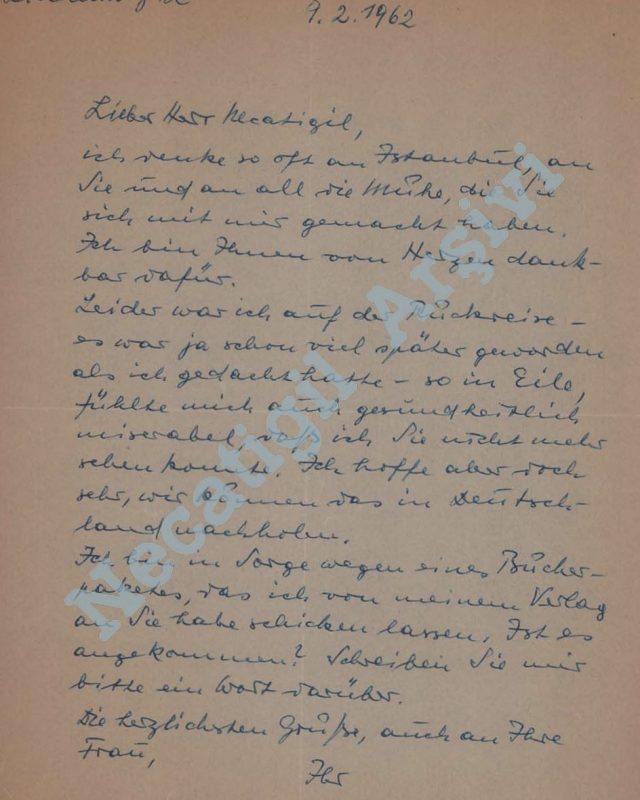 9.2.1962
Lieber Herr Necatigil,
ich denke so oft an Istanbul, an
Sie und an all die Mühe, die Sie
sich mit mir gemacht haben.
Ich bin Ihnen von Herzen dank-
bar dafür.
Leider war ich auf der Rückreise –
es war ja schon viel später geworden
als ich gedacht hatte – so in Eile,
fühlte mich auch gesundheitlich
miserabel, daß ich Sie nicht mehr
sehen konnte. Ich hoffe aber doch
sehr, wir können das in Deutsch-
land nachholen.
Ich bin in Sorge wegen eines Bücher-
paketes, das ich von meinem Verlag
an Sie habe schicken lassen. Ist es
angekommen? Schreiben Sie mir
bitte ein Wort darüber.
Die herzlichsten Grüße, auch an Ihre
Frau,
Ihr
Necatigil Arşivi